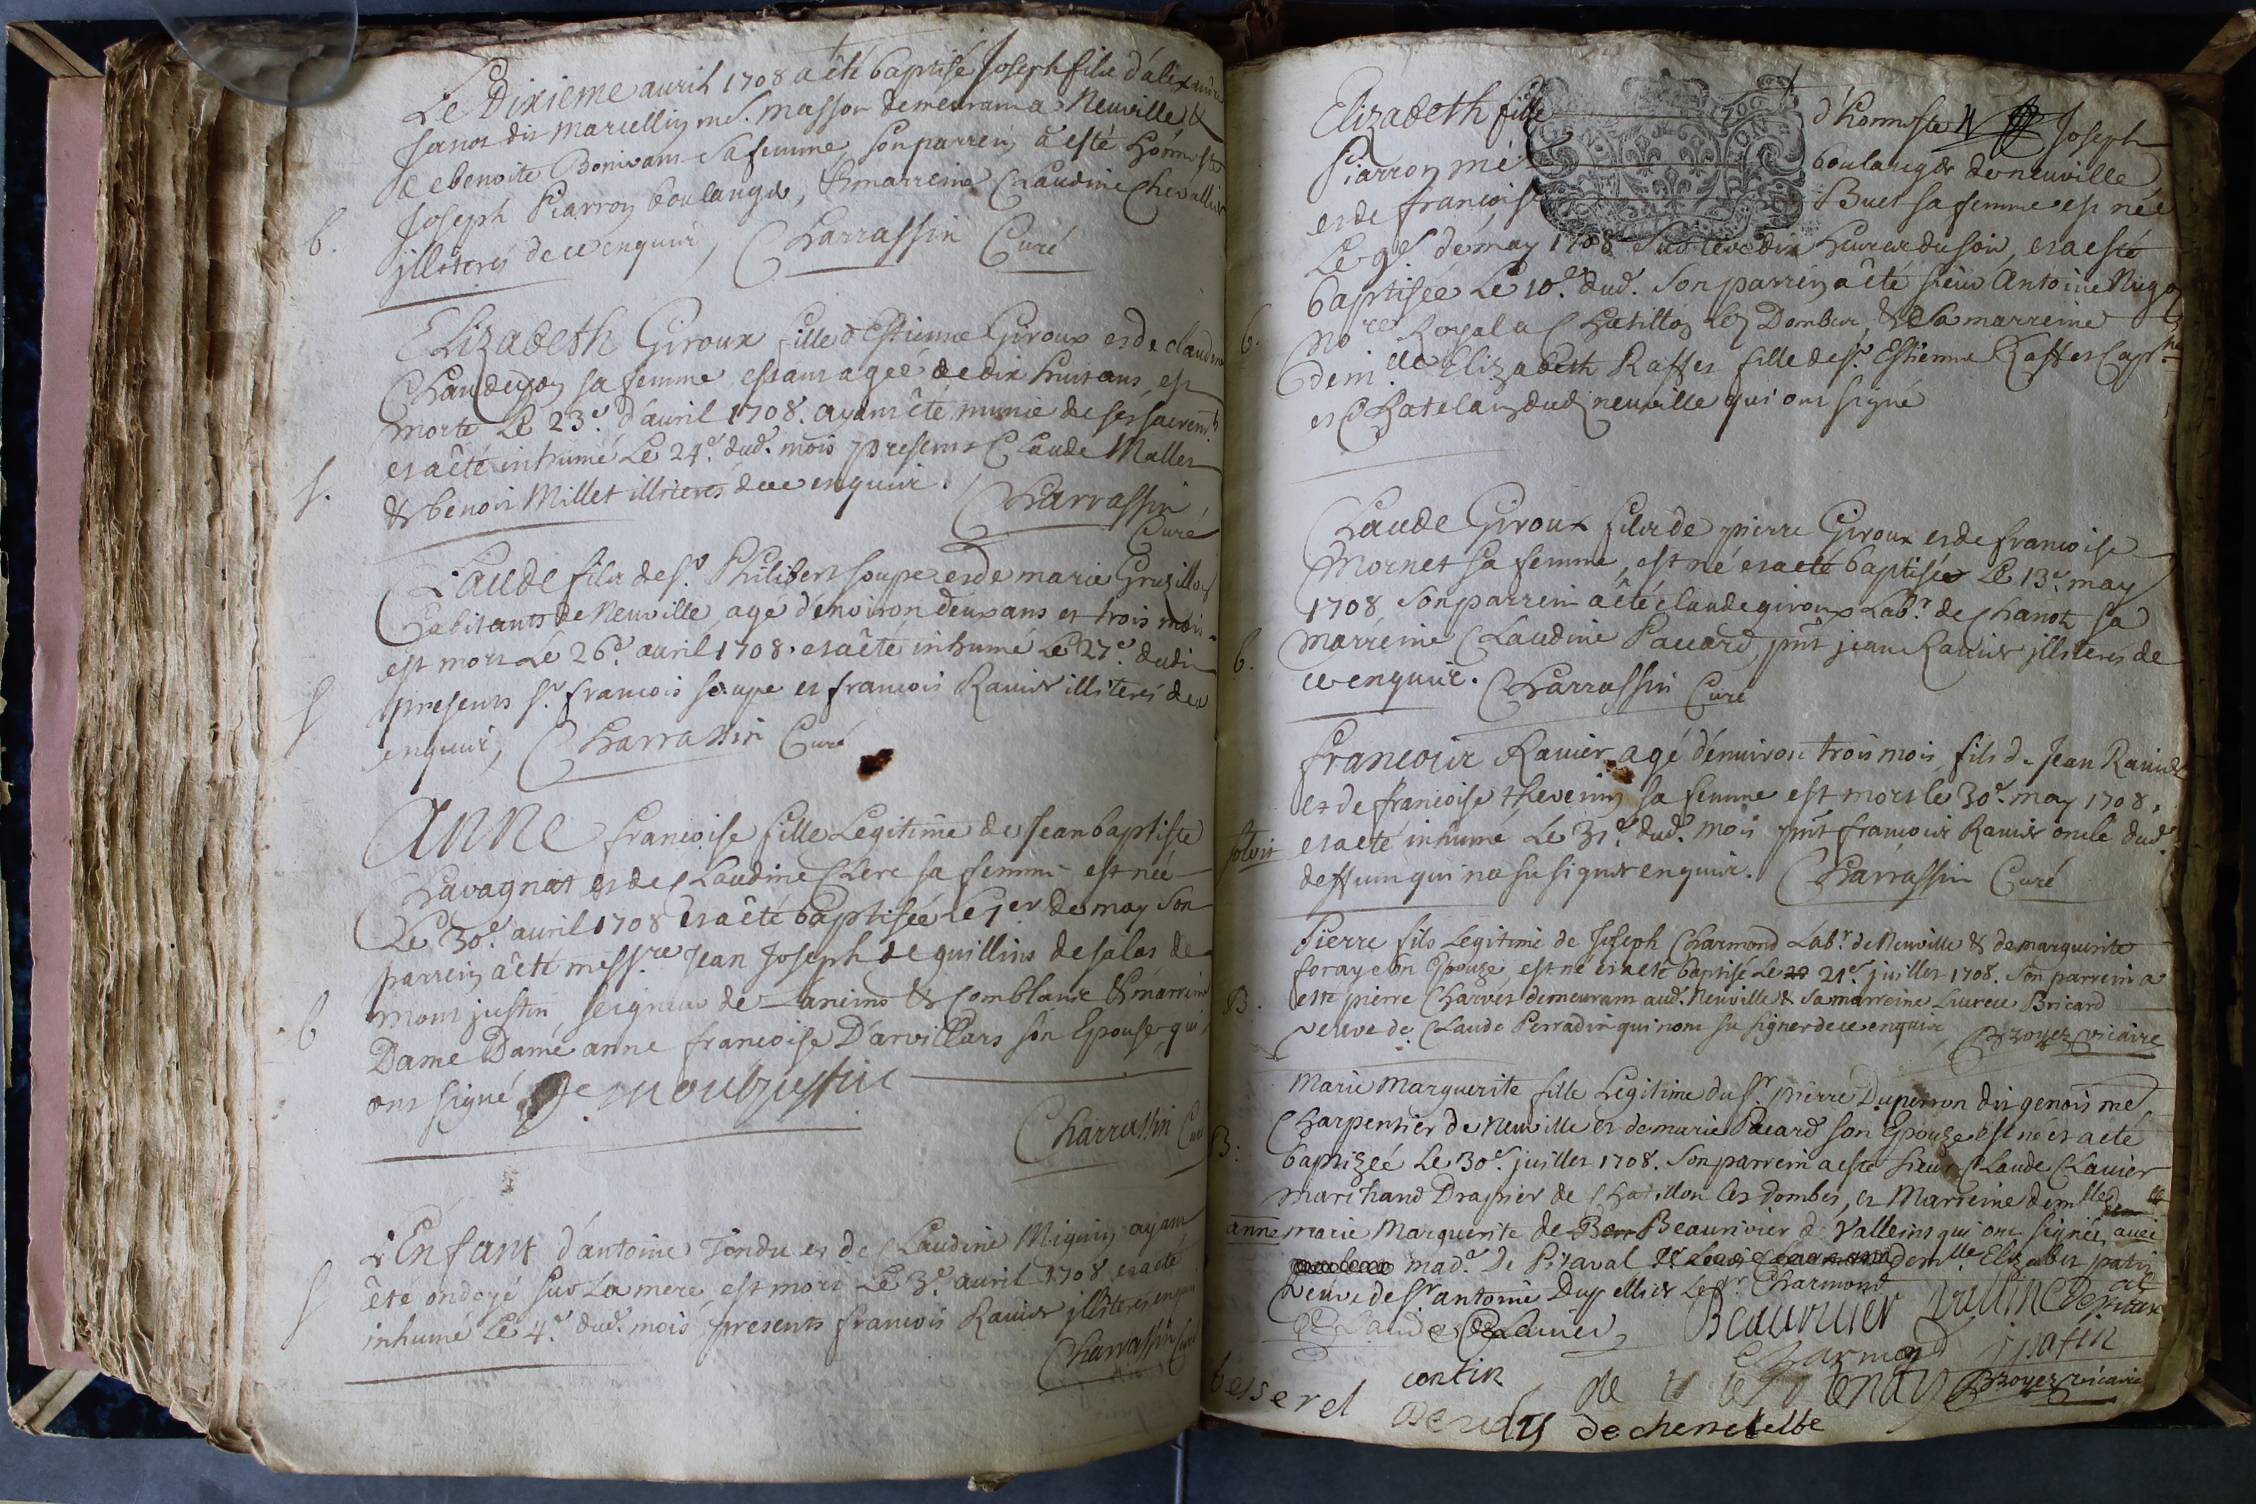 Le Dixieme auril 1708 a êté baptisé Joseph fils d'alexandre
Janot dit marcellin me. masson demeurant a Neuville &
de benoite Bonivant sa femme, son parrein à esté honneste
Joseph Piarron boulanger, & marreine Claudine Chevallier
b.
jllitterés de ce enquuis, Charrassin Curé
Elizabeth Giroux fille d'Estienne Giroux et de claudine
sa femme estant agée de dix huit ans, est
morte Le 23e. d'auril 1708. ayant êté munie de ses sacremts
et a êté inhumé Le 24e. dud. mois presents Claude Mallet
f.
& benoit Millet illiterés de ce enquuis. Charrassin
Curé
Claude fils de sr. Philibert soupe et de marie Gruzillon
habitants de Neuville, agé d'environ deux ans et trois mois
est mort Le 26e. auril 1708. et a êté inhumé Le 27e. dudit
presents sr. francois soupe et francois Ravier illiterés de ce
f
enquuis, Charrassin Curé
Anne francoise fille Legitime de Jean baptiste
Chavagnat et de Claudine Clerc sa femme est née
Le 30e. auril 1708 et a êté baptisée Le 1er de may son
parrein a êté messre. Jean Joseph de guillins de salas de
b
mont justin, seigneur de Laneins & Comblanc & marreine
Dame Dame anne francoise D'arvillars son Epouse qui
ont signé De moutjustin
Charrassin Curé
L'Enfant d'antoine Tondu et de Claudine Miguin ayant
f
êté ondoyé sur La mere est mort Le 3e. auril 1708 et a eté
inhumé Le 4e. dud. mois presents francois Ravier jlliterés enquuis
Charrassin Curé
Elizabeth fille d'honneste Joseph
Piarron me boulanger de neuville
et de francoise Buet sa femme est née
Le 9e. de may 1708 sur les dix heures du soir, et a esté
baptisée Le 10e. dud. Son parrein a êté sieur Antoine
b.
nore Royal a Chatillon les Dombes, & sa marreine
demlle Elizabeth Raffet fille de sr. Estienne Raffet Capne
et Chatelain dud. neuville qui ont signé
Claude Giroux fils de pierre Giroux et de francoise
Mornet sa femme, est né et a eté baptisée Le 13e. may
1708 Son parrein a êté claude giroux Labr. de Chanoz sa
b.
marreine Claudine Pacard, pnt jean Ravier jlliterés de
ce enquuis. Charrassin Curé
Francois Ravier agé d'environ trois mois, fils de Jean Ravier
et de francoise thevenin sa femme est mort le 30e. may 1708,
et a eté inhumé Le 31e. dud. mois pnt francois Ravier oncle dud.
deffunt qui n'a su signer enquuis. Charrassin Curé
Pierre fils Legitime de Joseph Charmond Labr. de Neuville & de marguerite
foray son Epouze, est né et a eté baptisé Le 21e. juillet 1708. Son parrein a
B.
esté pierre Charvet demeurant aud. Neuville & sa marreine Lucrece Bricard
veuve de Claude Perradin qui n'ont su signer de ce enquuis, Broyer vicaire
Marie Marguerite fille Legitime du sr. pierre Duperron dit genois me
Charpentier de Neuville et de marie Pacard son Epouze est né et a eté
B.
baptizeé Le 30e. juillet 1708. Son parrein a esté sieur Claude Clavier
marchand Drapier de Chatillon les dombes, et Marreine demlle
anne marie Marguerite de Beaurivier de Valleins qui ont signé avec
mad. De Pitaval demlle. Elizabet patin
veuve de sr antoine Dupellier Le sr. Charmond
Claude Clavier Beaurivier vallin
Charmond patin
Broyer vicaire
besserel contin
de chenelette